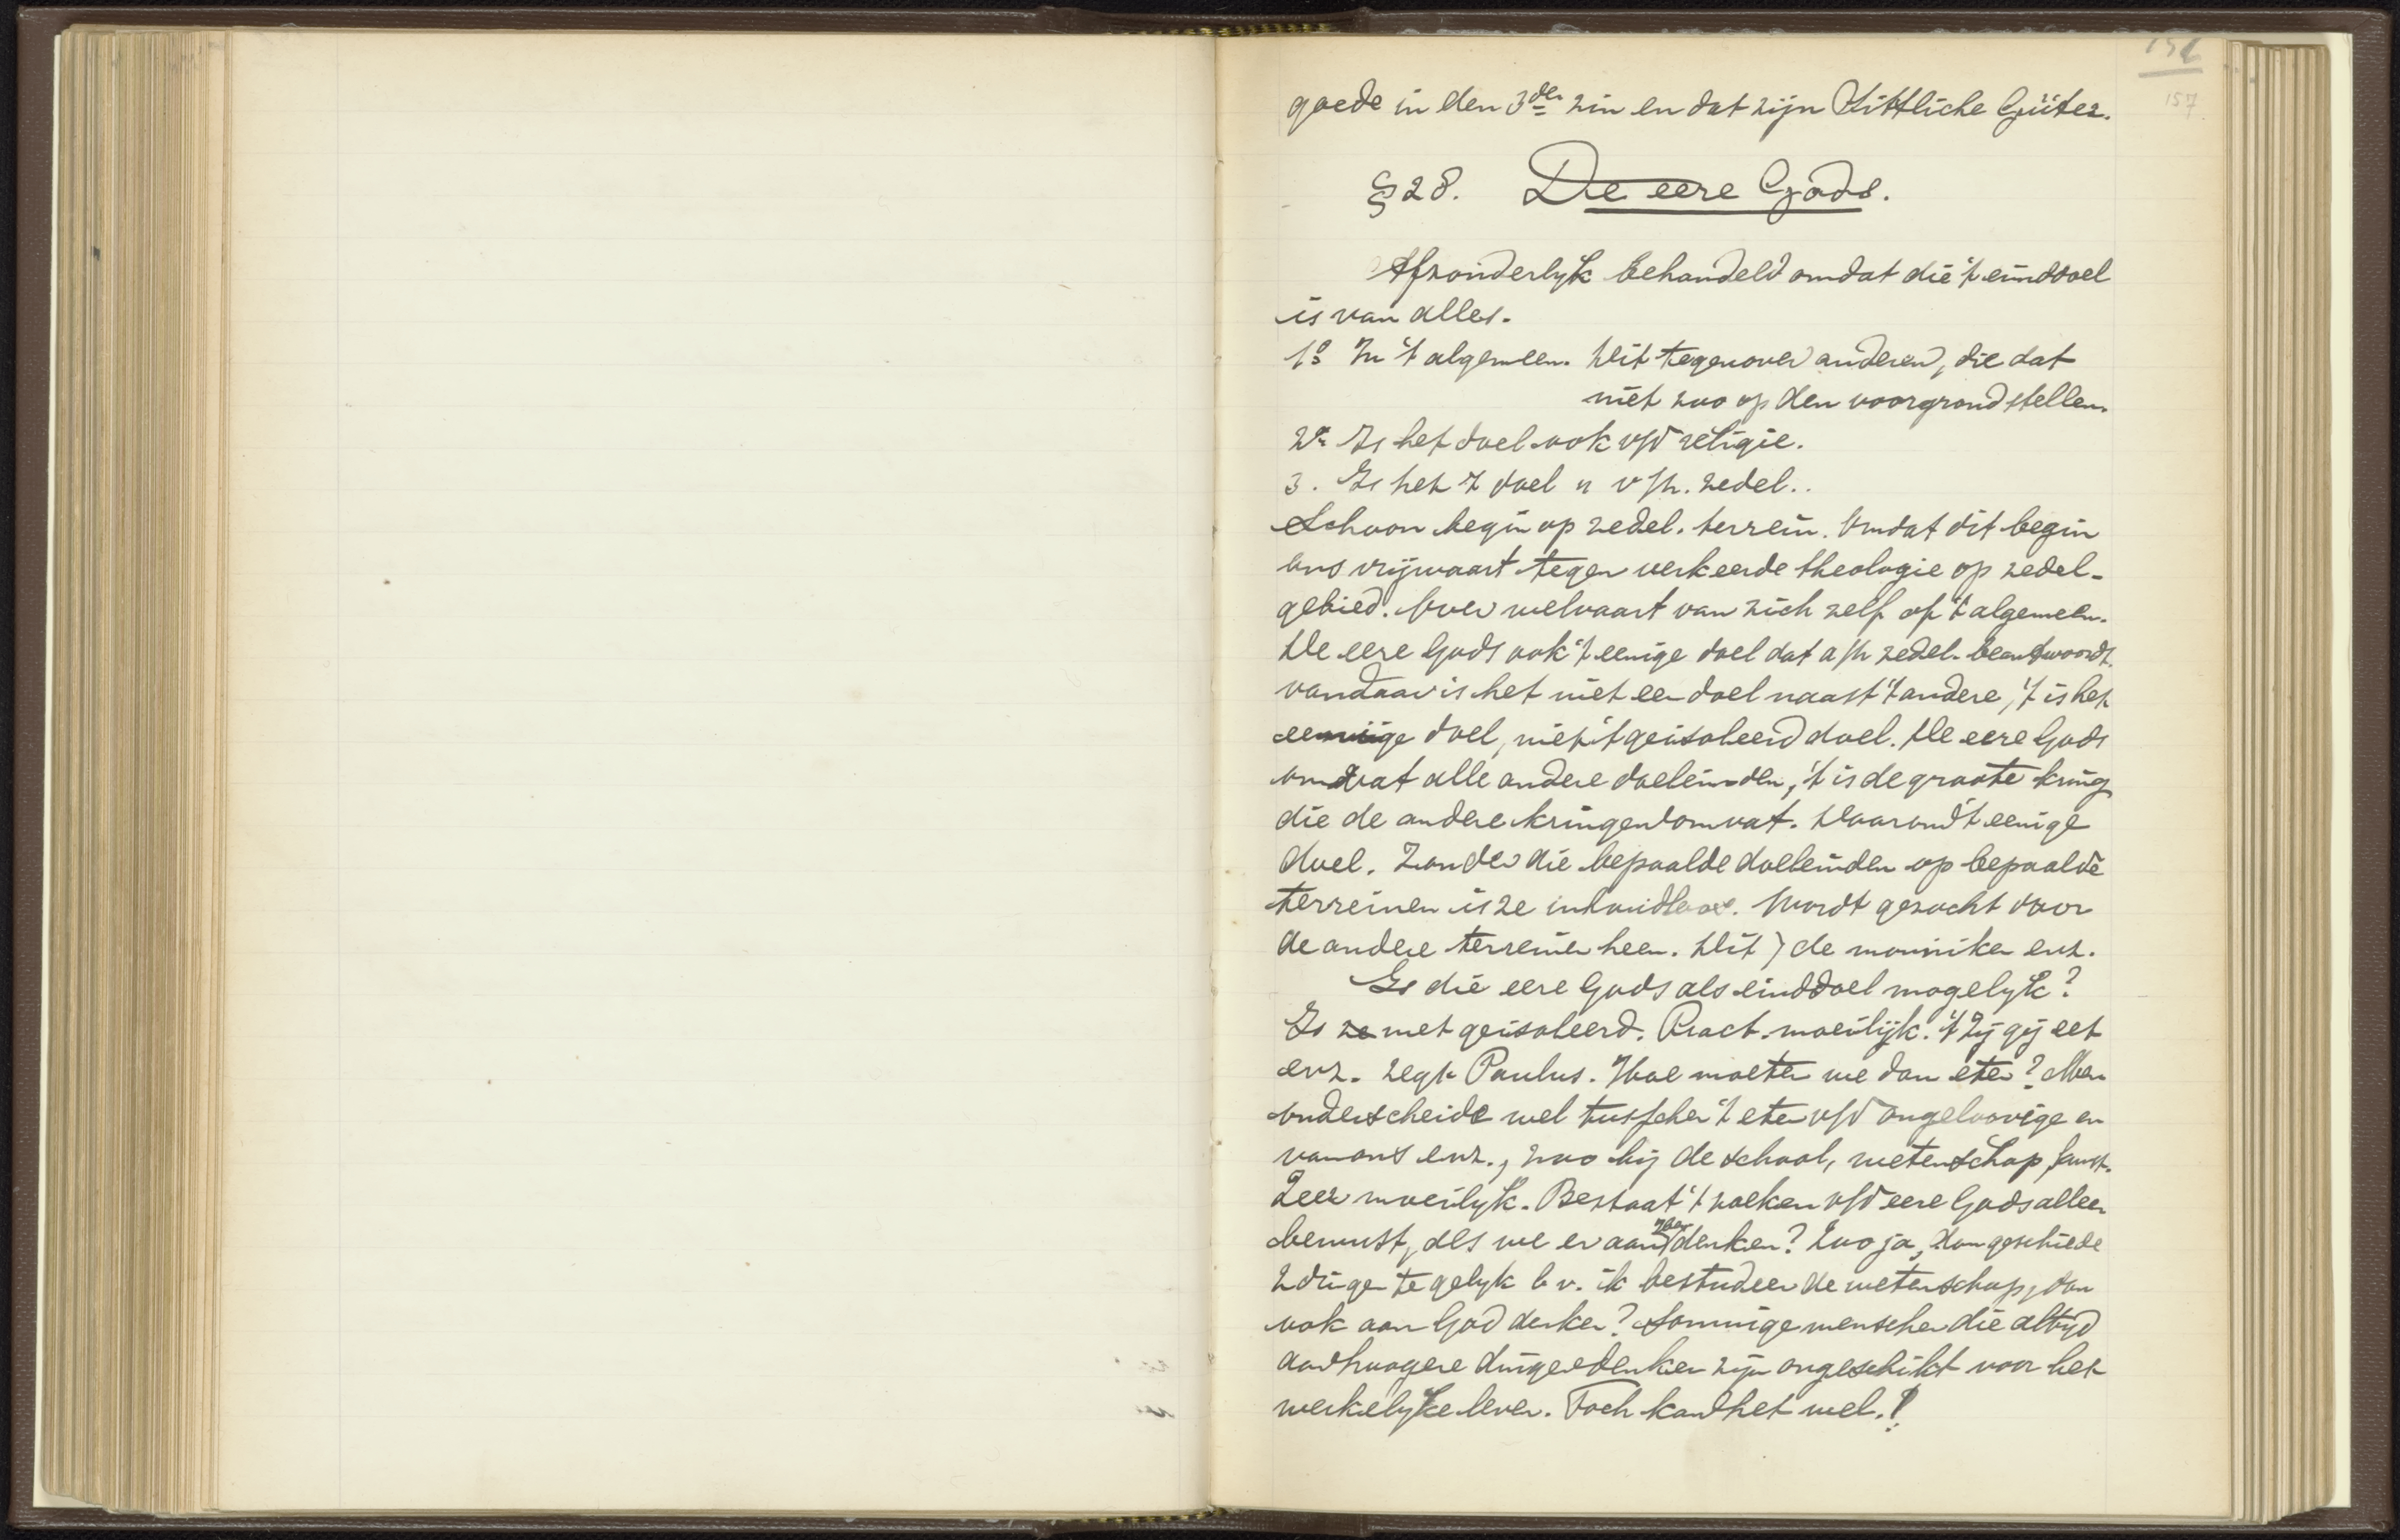 157
goede in den 3den zin en dat zijn Sittliche Güter.
§ 28. De eere Gods.
Afzonderlyk behandeld omdat die 't einddoel
is van alles.
1o In 't algemeen. Dit tegenover anderen, die dat
niet zoo op den voorgrond stellen.
2e Is het doel ook v/d religie.
3. Is het doel " v/h. zedel..
Schoon begin op zedel. terrein. Omdat dit begin
ons vrijwaart tegen verkeerde theologie op zedel-
gebied. Over welvaart van zich zelf of 't algemeen.
De eere Gods ook 't eenige doel dat a/h zedel. beantwoordt.
vandaar is het niet een doel naast 't andere, 't is het
eenige doel, niet 't geisoleerd doel. De eere Gods
omvat alle andere doeleinden, 't is de groote kring
die de andere kringen omvat. Daarom 't eenige
doel. Zonder die bepaalde doeleinden op bepaalde
terreinen is ze inhoudloos. Wordt gezocht door
de andere terreinen heen. Dit ) de monniken enz.
Is die eere Gods als einddoel mogelyk?
Is ze niet geisoleerd. Pract. moeilijk. 't Zij gij eet
enz. zegt Paulus. Hoe moeten we dan eten? Men
onderscheide wel tusschen 't eten v/d ongeloovige en
van ons enz., zoo bij de school, wetenschap, kunst.
Zeer moeilyk. Bestaat 't zoeken v/d eere Gods alleen
bewust, als we er aan denken? Zoo ja, dan geschiede
2 dingen te gelyk b v. ik bestudeer de wetenschap, dan
ook aan God denken? Sommige menschen die altyd
aan hoogere dingen denken zijn ongeschikt voor het
werkelyke leven. Toch kan het wel.!